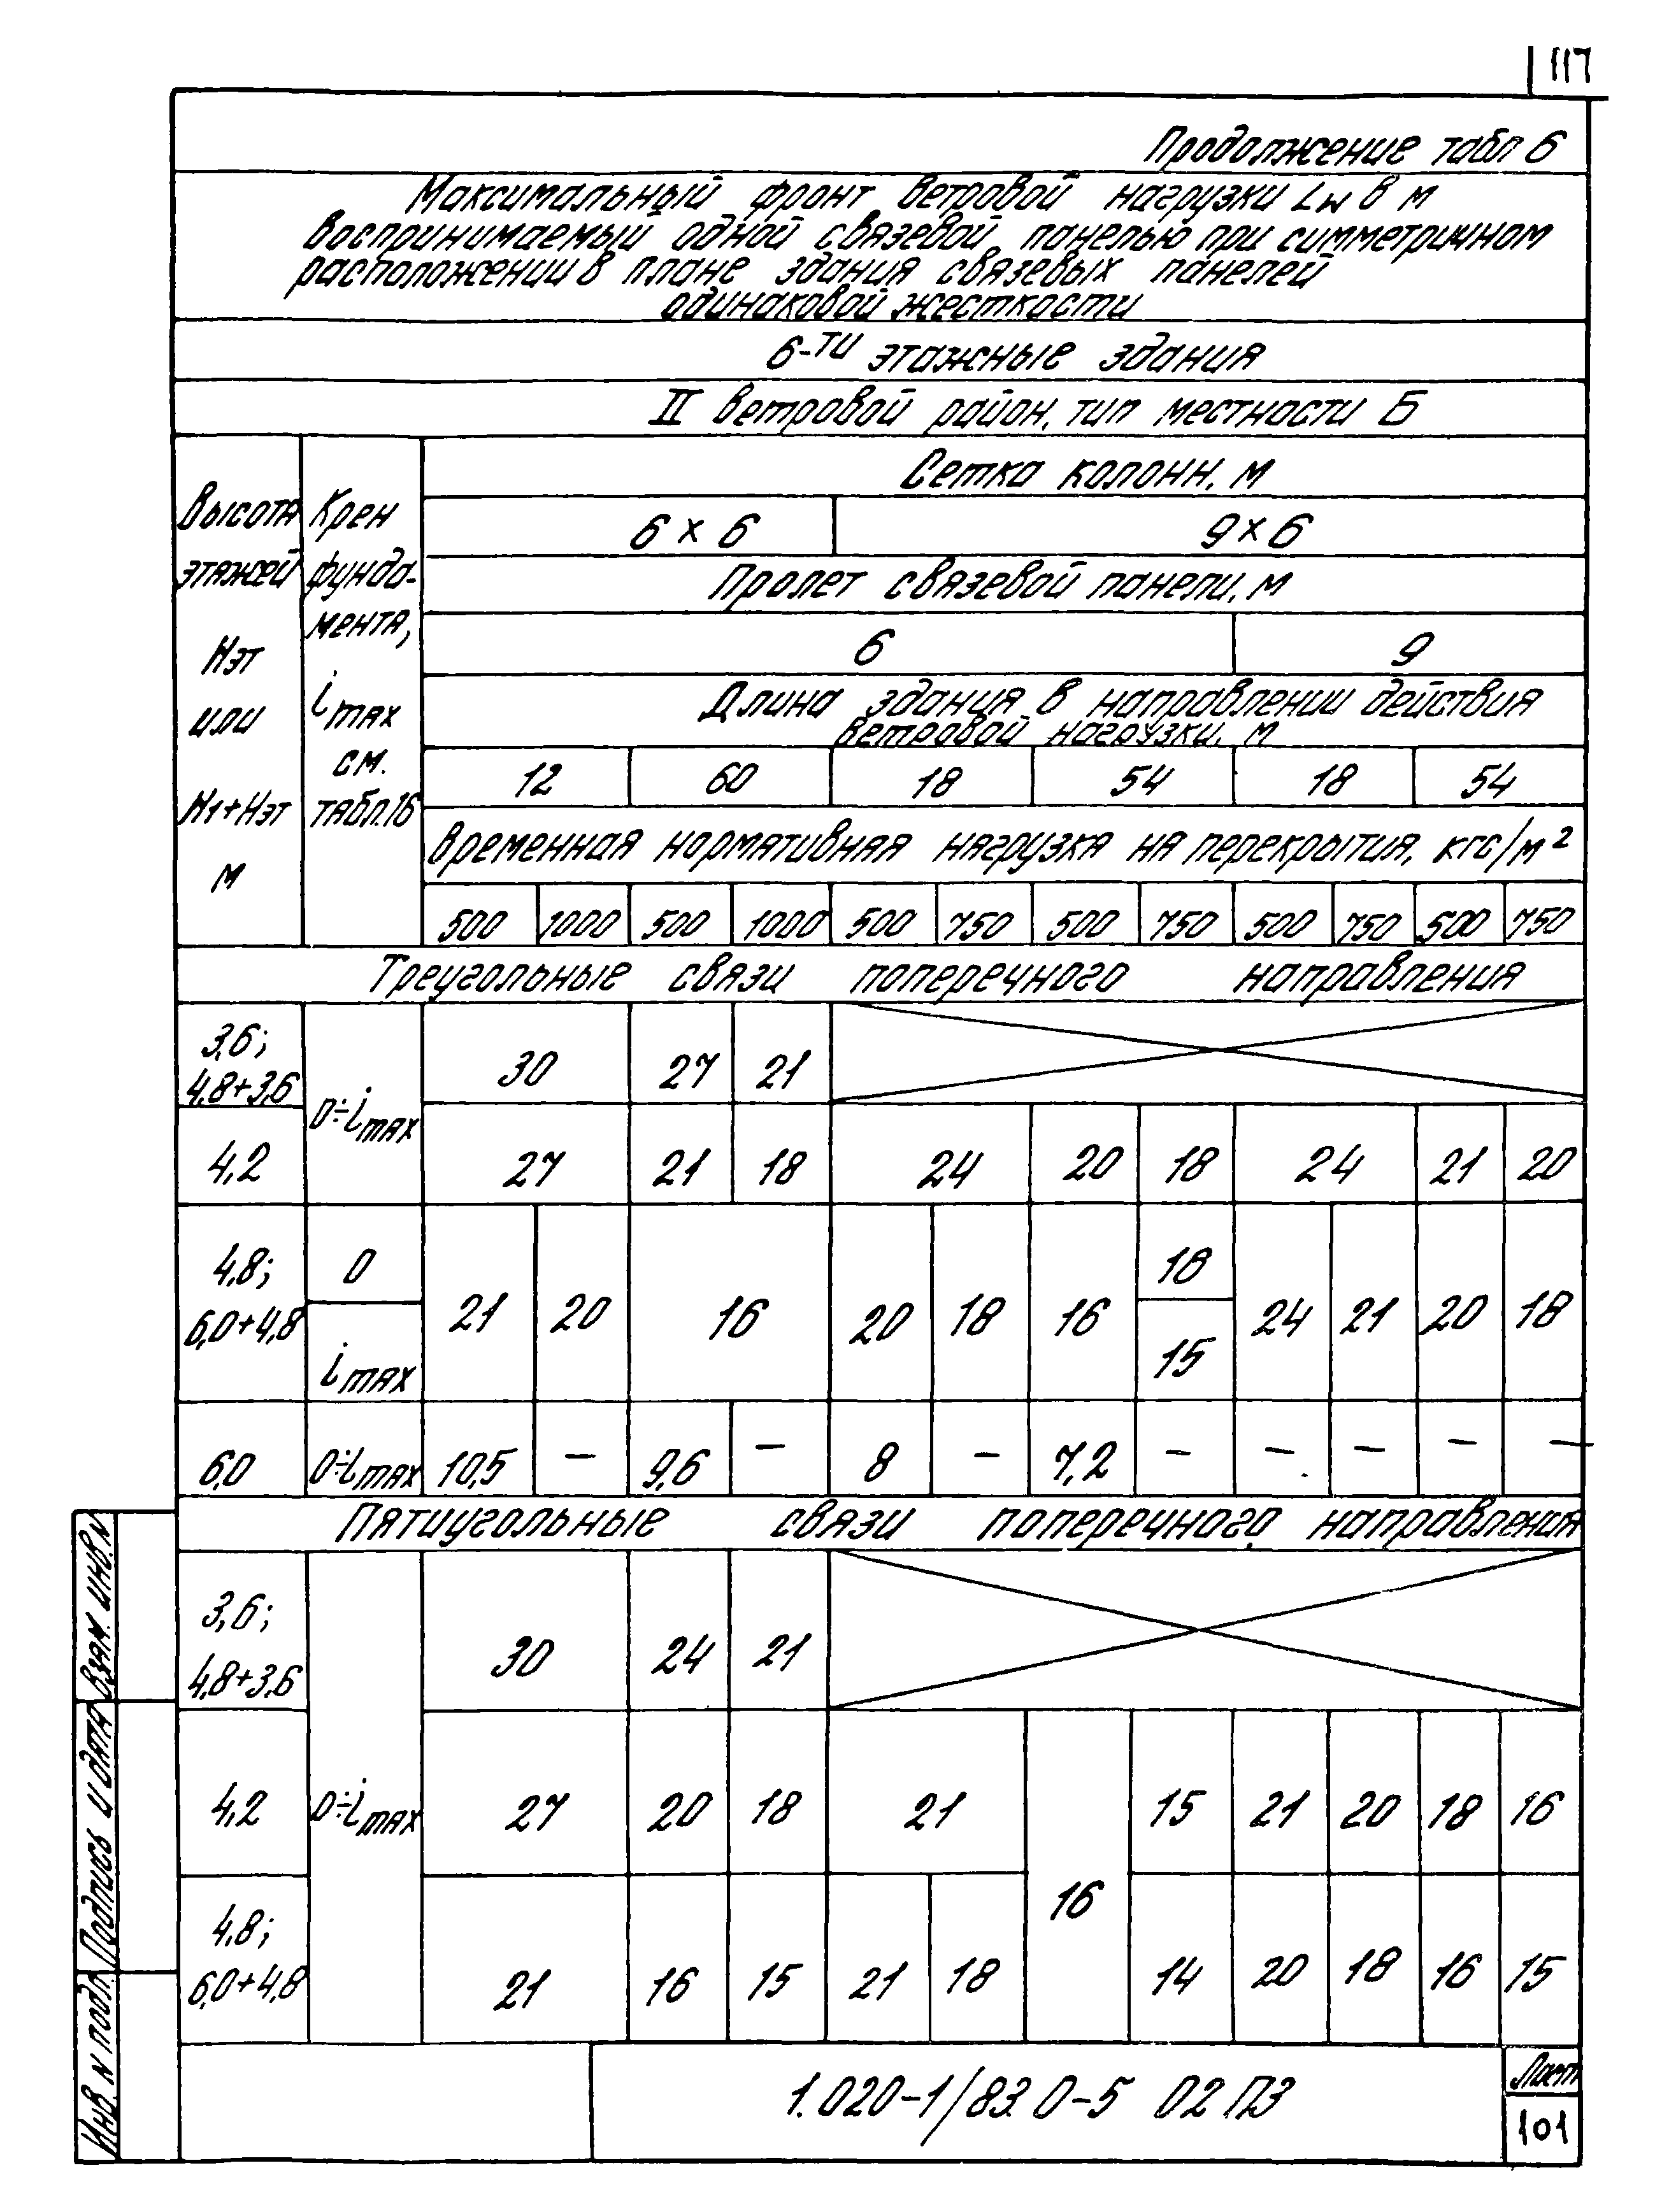 117
Продолжение табл 6
Максимальный фронт ветровой нагрузки Lw в м
воспринимаемый одной связевой панелью при симметричном
расположении в плане здания связевых панелей
одинаковой жесткости
6-ти этажные здания
II ветровой район, тип местности Б
Высота этажей Нэт или Н1+Нэт м
Крен фунда-мента, imax см. табл.16
Сетка колонн, м
6 × 6 9 × 6
Пролет связевой панели, м
6 9
Длина здания в направлении действия
ветровой нагрузки, м
12 60 18 54 18 54
Временная нормативная нагрузка на перекрытия, кгс/м²
500 1000 500 1000 500 750 500 750 500 750 500 750
Треугольные связи поперечного направления
3,6; 4,8+3,6 0÷imax 30 27 21
4,2 27 21 18 24 20 18 24 21 20
4,8; 6,0+4,8 0 21 20 16 20 18 16 16 24 21 20 18
imax 15
6,0 0÷imax 10,5 – 9,6 – 8 – 7,2 – – – – –
Пятиугольные связи поперечного направления
3,6; 4,8+3,6 30 24 21
4,2 0÷imax 27 20 18 21 16 15 21 20 18 16
4,8; 6,0+4,8 21 16 15 21 18 14 20 18 16 15
Взам. инв. N
Подпись и дата
Инв. N подл.
1.020-1/83. 0-5 02 ПЗ
Лист
101